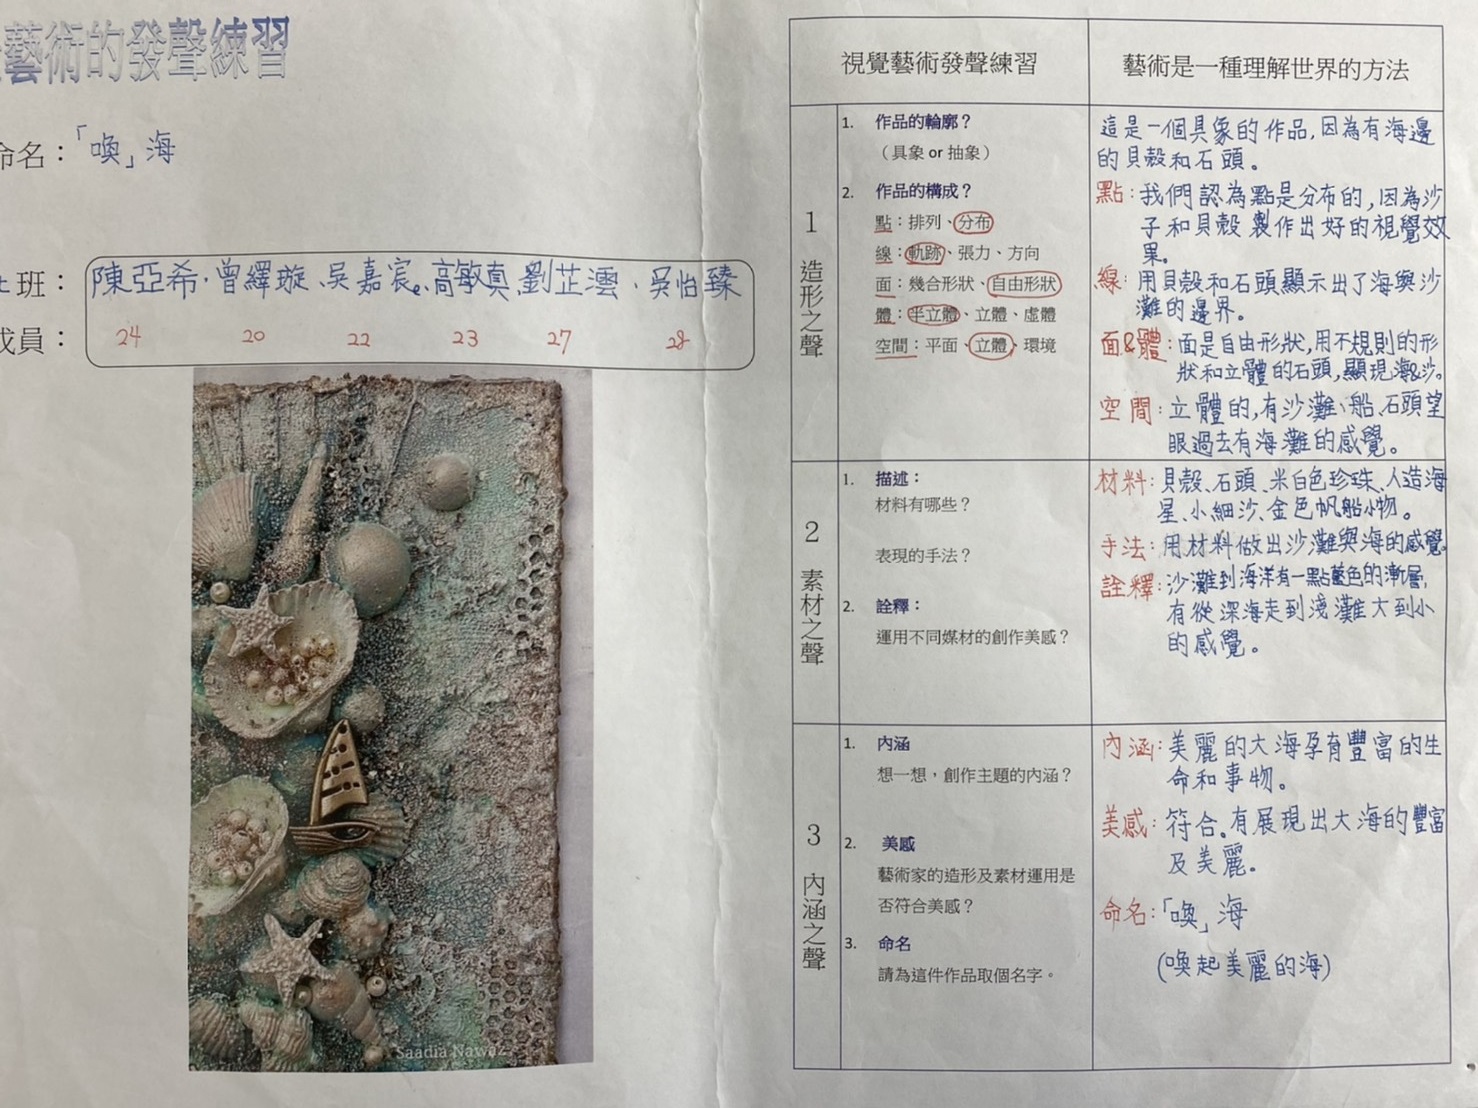 藝術的發聲練習
命名：「喚」海
班：陳亞希、曾繹璇、吳嘉宸、高敏真、劉芷澐、吳怡臻
成員：24 20 22 23 27 28
Saadia Nawaz
視覺藝術發聲練習
藝術是一種理解世界的方法
1 造形之聲
1. 作品的輪廓？
（具象 or 抽象）
2. 作品的構成？
點：排列、分布
線：軌跡、張力、方向
面：幾合形狀、自由形狀
體：半立體、立體、虛體
空間：平面、立體、環境
這是一個具象的作品,因為有海邊
的貝殼和石頭。
點：我們認為點是分布的,因為沙
子和貝殼製作出好的視覺效
果。
線：用貝殼和石頭顯示出了海與沙
灘的邊界。
面&體：面是自由形狀,用不規則的形
狀和立體的石頭,顯現海&沙。
空間：立體的,有沙灘、船、石頭望
眼過去有海灘的感覺。
2 素材之聲
1. 描述：
材料有哪些？
表現的手法？
2. 詮釋：
運用不同媒材的創作美感？
材料：貝殼、石頭、米白色珍珠、人造海
星、小細沙、金色帆船小物。
手法：用材料做出沙灘與海的感覺。
詮釋：沙灘到海洋有一點藍色的漸層,
有從深海走到淺灘大到小
的感覺。
3 內涵之聲
1. 內涵
想一想，創作主題的內涵？
2. 美感
藝術家的造形及素材運用是
否符合美感？
3. 命名
請為這件作品取個名字。
內涵：美麗的大海孕育豐富的生
命和事物。
美感：符合。有展現出大海的豐富
及美麗。
命名：「喚」海
(喚起美麗的海)